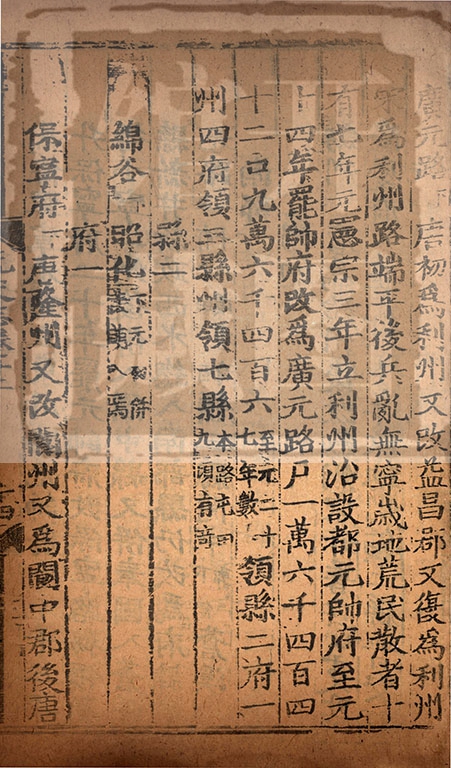 廣元路下唐初為利州又改益昌郡又復為利州
宋為利州路端平後兵亂無寧歲地荒民散者十
有七年元憲宗三年立利州治設都元帥府至元
十四年罷帥府改為廣元路戶一萬六千四百四
十二口九萬六千四百六至元二十七年數本路屯田九頃有奇領縣二府一
州四府領三縣州領七縣
縣二
綿谷下昭化下元初併葭萌入焉
府一
保寧府下唐隆州又改閬州又為閬中郡後唐